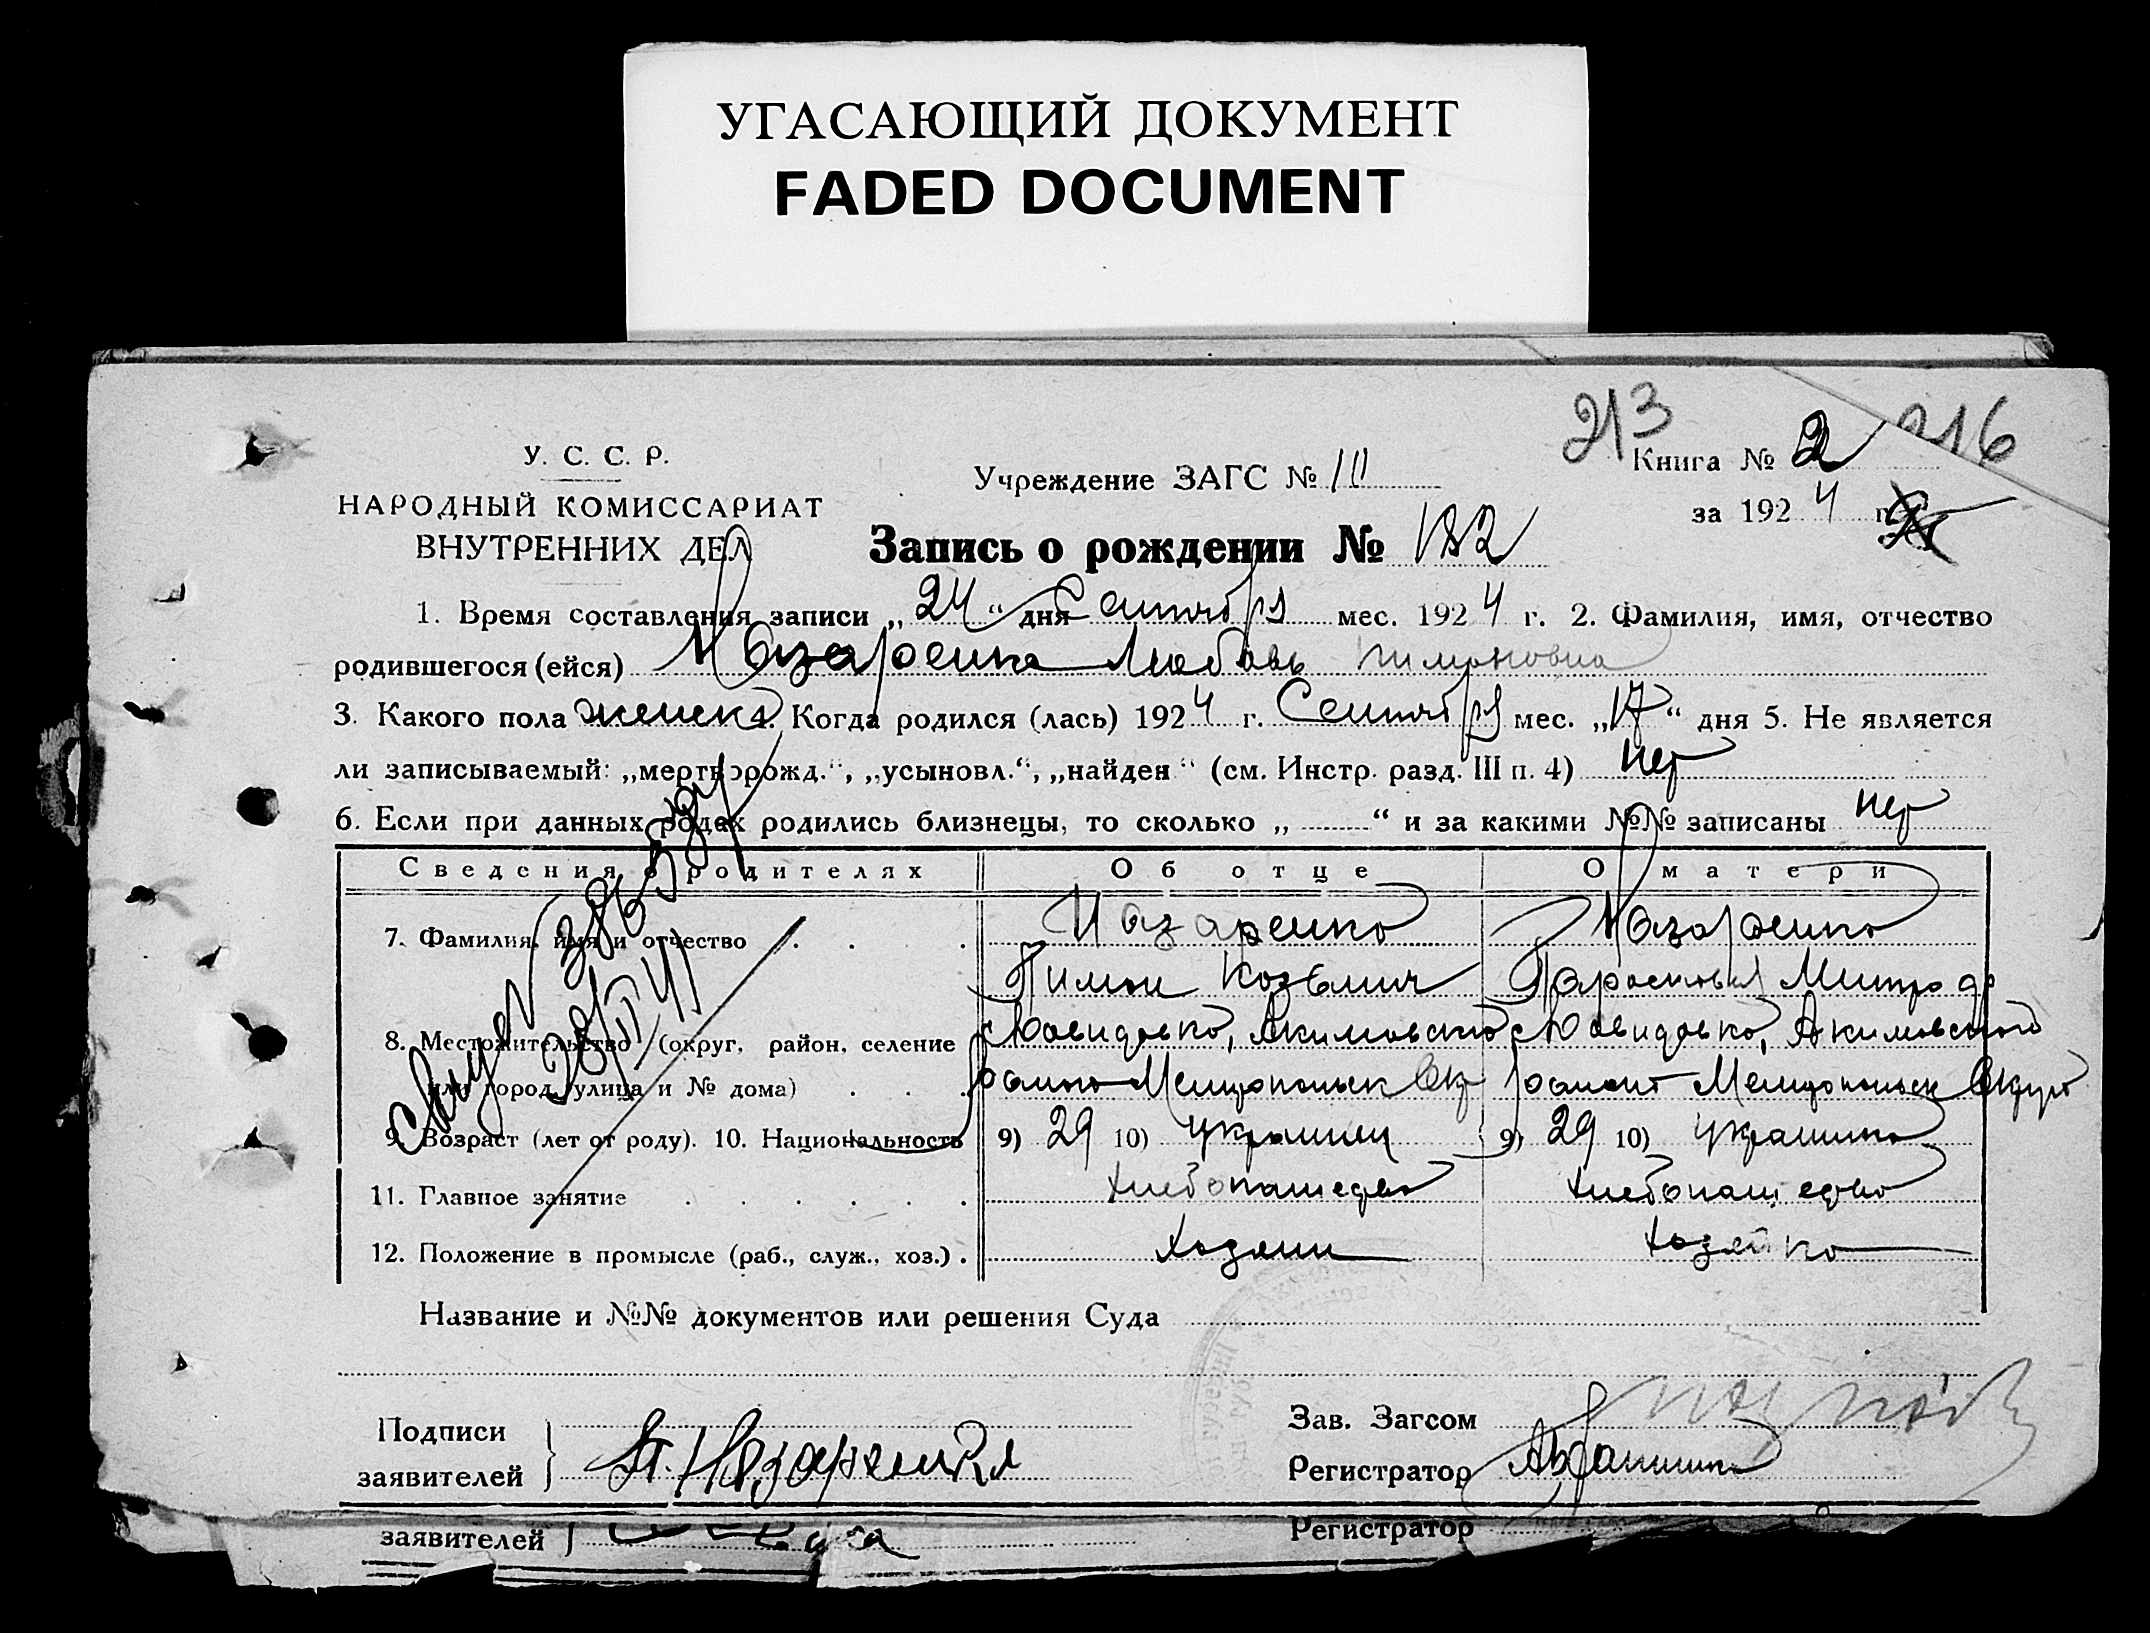 УГАСАЮЩИЙ ДОКУМЕНТ
FADED DOCUMENT
213
216
У. С. С. Р.
НАРОДНЫЙ КОМИССАРИАТ
ВНУТРЕННИХ ДЕЛ
Учреждение ЗАГС №
Книга № 2
за 1924 г.
Запись о рождении № 182
1. Время составления записи „24“ дня Сентября мес. 1924 г. 2. Фамилия, имя, отчество
родившегося (ейся) Назаренко Любовь Пимоновна
3. Какого пола женск 4. Когда родился (лась) 1924 г. Сентября мес. „17“ дня 5. Не является
ли записываемый: „мертворожд.“, „усыновл.“, „найден“ (см. Инстр. разд. III п. 4) нет
6. Если при данных родах родились близнецы, то сколько „ “ и за какими №№ записаны нет
Сведения о родителях Об отце О матери
7. Фамилия, имя и отчество Назаренко Назаренко
Пимон Козьмич Парасковья
8. Местожительство (округ, район, селение Давидовка, Акимовского Давидовка, Акимовского
или город, улица и № дома) района Мелитопольск Окр района Мелитопольск Округа
9. Возраст (лет от роду). 10. Национальность 9) 29 10) украинец 9) 29 10) украинка
11. Главное занятие хлебопашество хлебопашество
12. Положение в промысле (раб., служ., хоз.) . хозяин хозяйка
Название и №№ документов или решения Суда
Подписи
заявителей
П. Назаренко
Зав. Загсом
Регистратор
заявителей
Регистратор